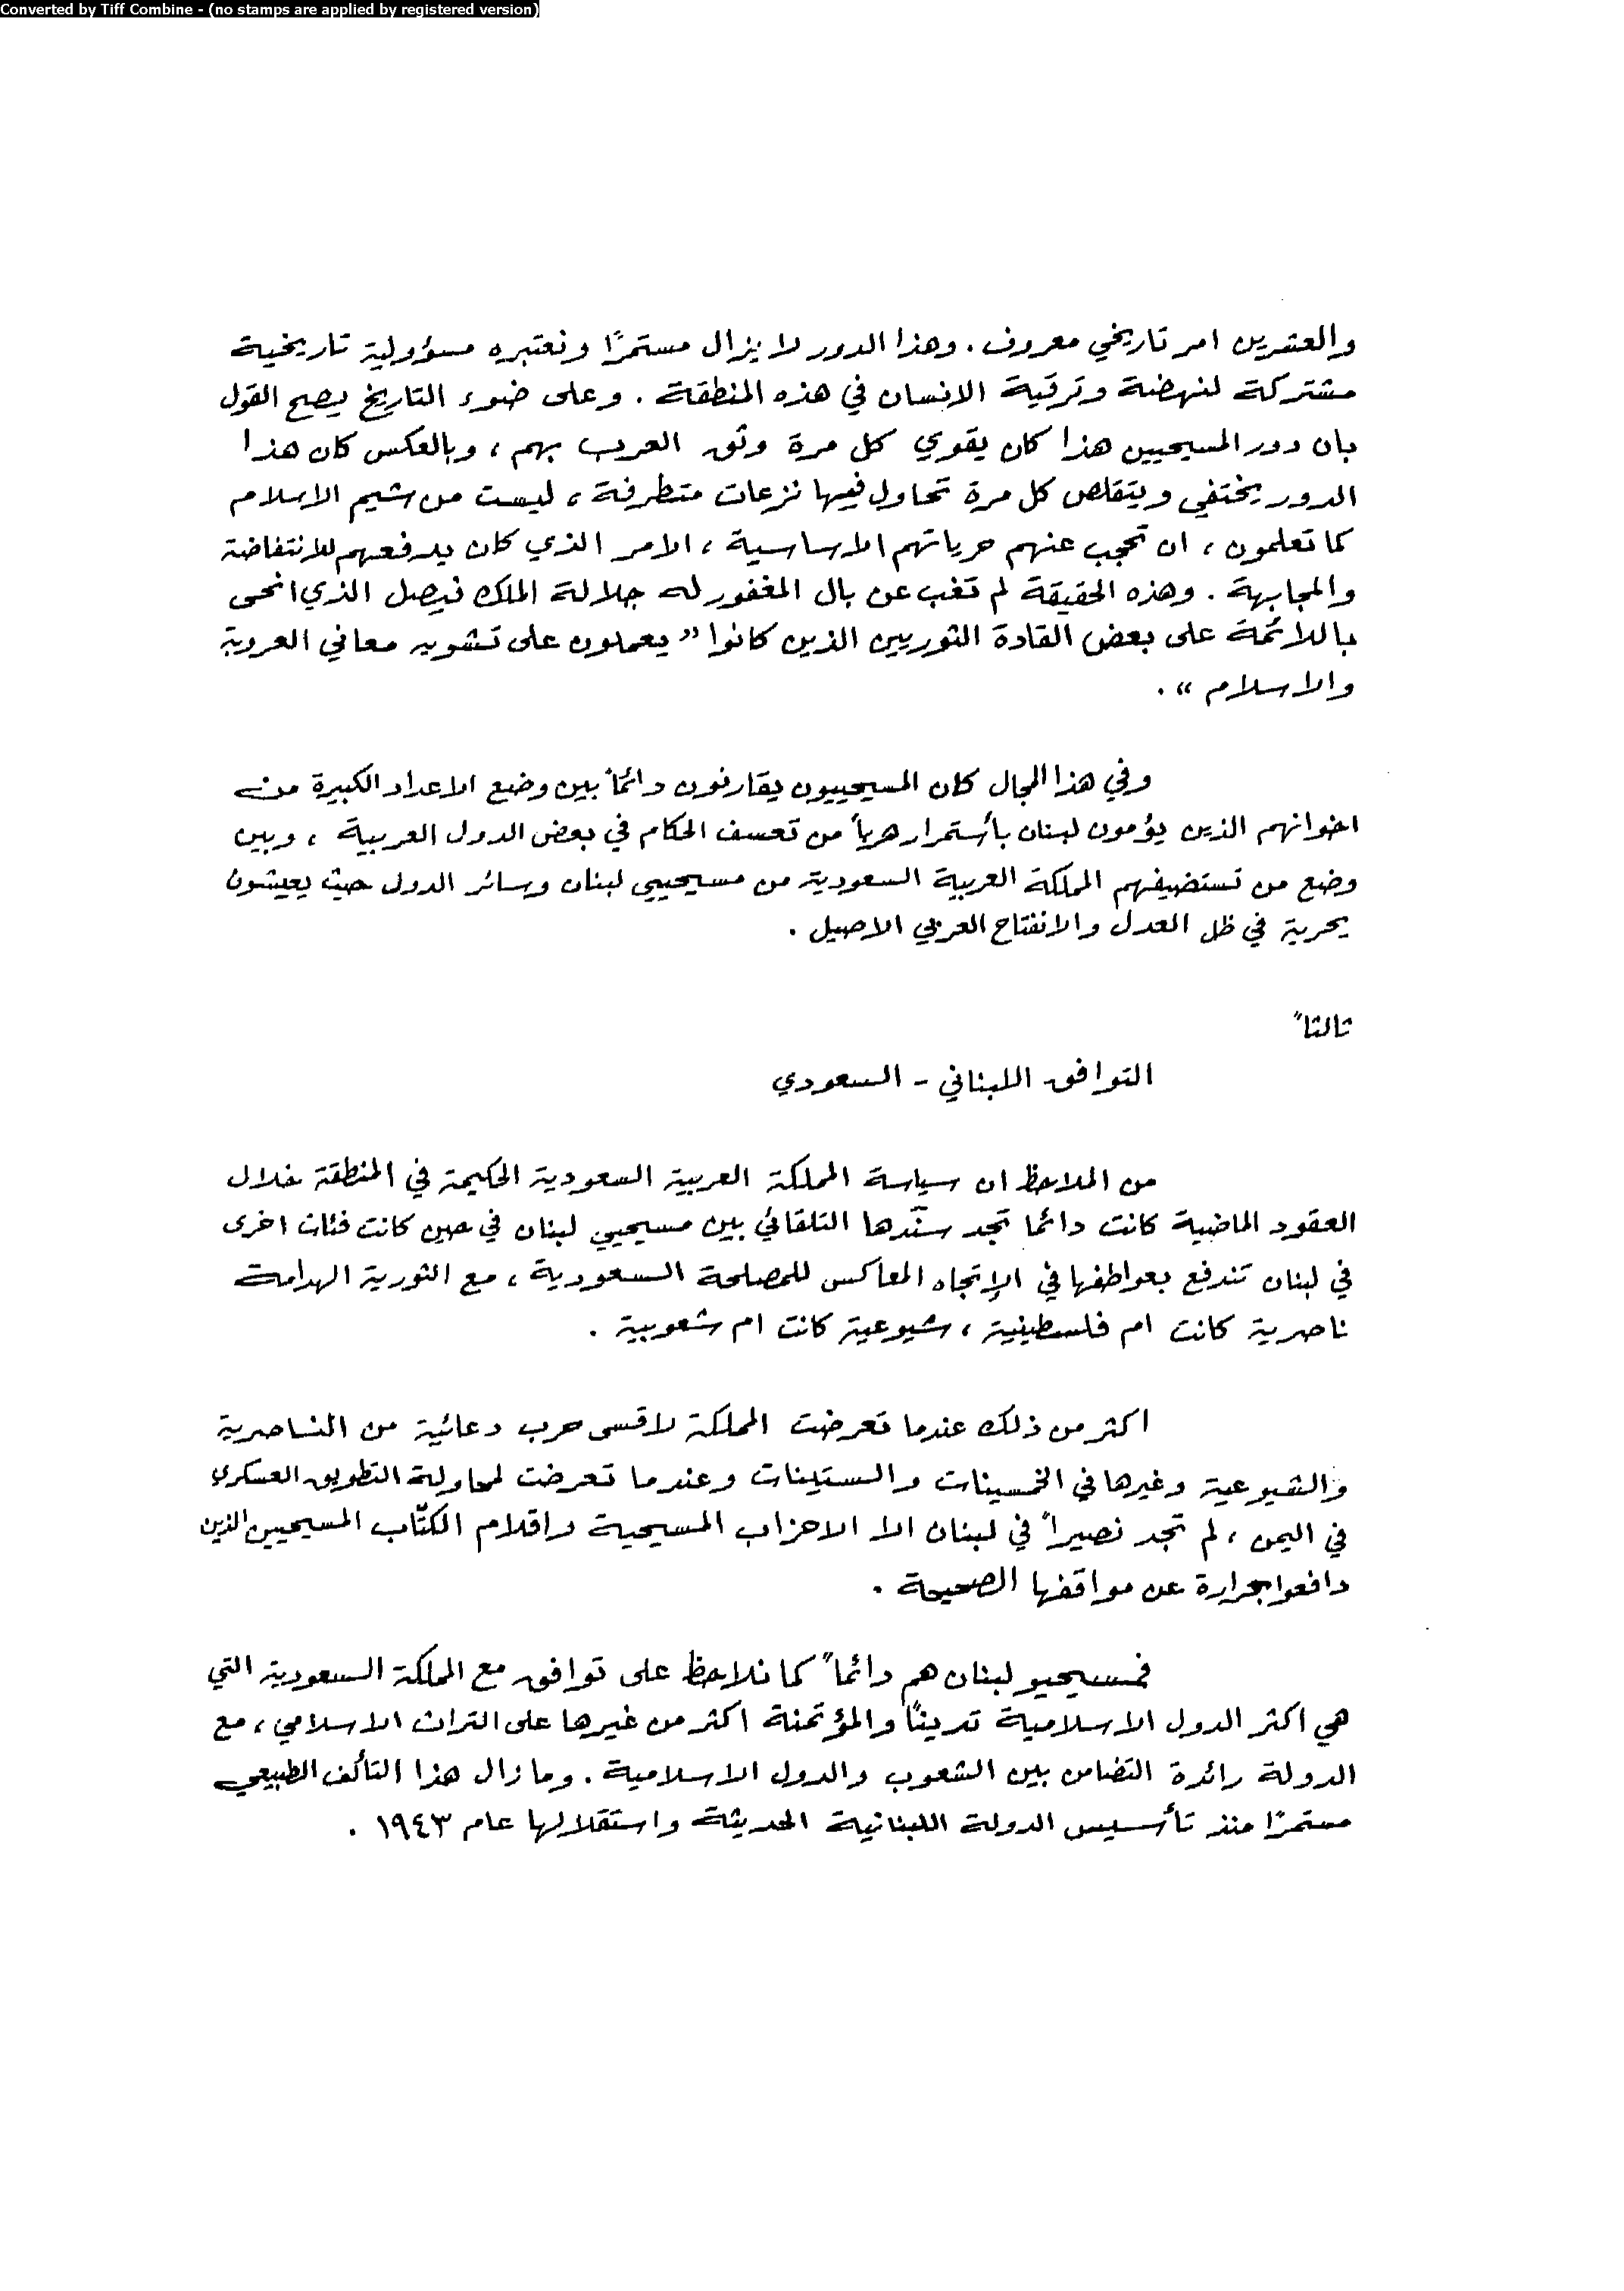 Converted by Tiff Combine - (no stamps are applied by registered version)
والعشرين امر تاريخي معروف . وهذا الدور لا يزال مستمرًا ونعتبره مسؤولية تاريخية
مشتركة لنهضة وترقية الانسان في هذه المنطقة . وعلى ضوء التاريخ يصح القول
بان دور المسيحيين هذا كان يقوي كل مرة وثق العرب بهم ، وبالعكس كان هذا
الدور يختفي ويتقلص كل مرة تحاول فيها نزعات متطرفة ، ليست من شيم الاسلام
كما تعلمون ، ان تحجب عنهم حرياتهم الاساسية ، الامر الذي كان يدفعهم للانتفاضة
والمجابهة . وهذه الحقيقة لم تغب عن بال المغفور له جلالة الملك فيصل الذي انحى
باللائمة على بعض القادة الثوريين الذين كانوا " يعملون على تشويه معاني العروبة
والاسلام " .
وفي هذا المجال كان المسيحييون يقارنون دائماً بين وضع الاعداد الكبيرة من
اخوانهم الذين يؤمون لبنان بأستمرار هرباً من تعسف الحكام في بعض الدول العربية ، وبين
وضع من تستضيفهم المملكة العربية السعودية من مسيحيي لبنان وسائر الدول حيث يعيشون
بحرية في ظل العدل والانفتاح العربي الاصيل .
ثالثاً
التوافق اللبناني - السعودي
من الملاحظ ان سياسة المملكة العربية السعودية الحكيمة في المنطقة خلال
العقود الماضية كانت دائما تجد سنّدها التلقائي بين مسيحيي لبنان في حين كانت فئات اخرى
في لبنان تندفع بعواطفها في الإتجاه المعاكس للمصلحة السعودية ، مع الثورية الهدامة
ناصرية كانت ام فلسطينية ، شيوعية كانت ام شعوبية .
اكثر من ذلك عندما تعرضت المملكة لاقسى حرب دعائية من الناصرية
والشيوعية وغيرها في الخمسينات والستينات وعندما تعرضت لمحاولة التطويق العسكري
في اليمن ، لم تجد نصيراً في لبنان الا الاحزاب المسيحية واقلام الكتّاب المسيحيين الذين
دافعوا بحرارة عن مواقفها الصحيحة .
فمسيحيو لبنان هم دائماً كما نلاحظ على توافق مع المملكة السعودية التي
هي اكثر الدول الاسلامية تدينًا والمؤتمنة اكثر من غيرها على التراث الاسلامي ، مع
الدولة رائدة التضامن بين الشعوب والدول الاسلامية . وما زال هذا التألف الطبيعي
مستمرًا منذ تأسيس الدولة اللبنانية الحديثة واستقلالها عام ١٩٤٣ .